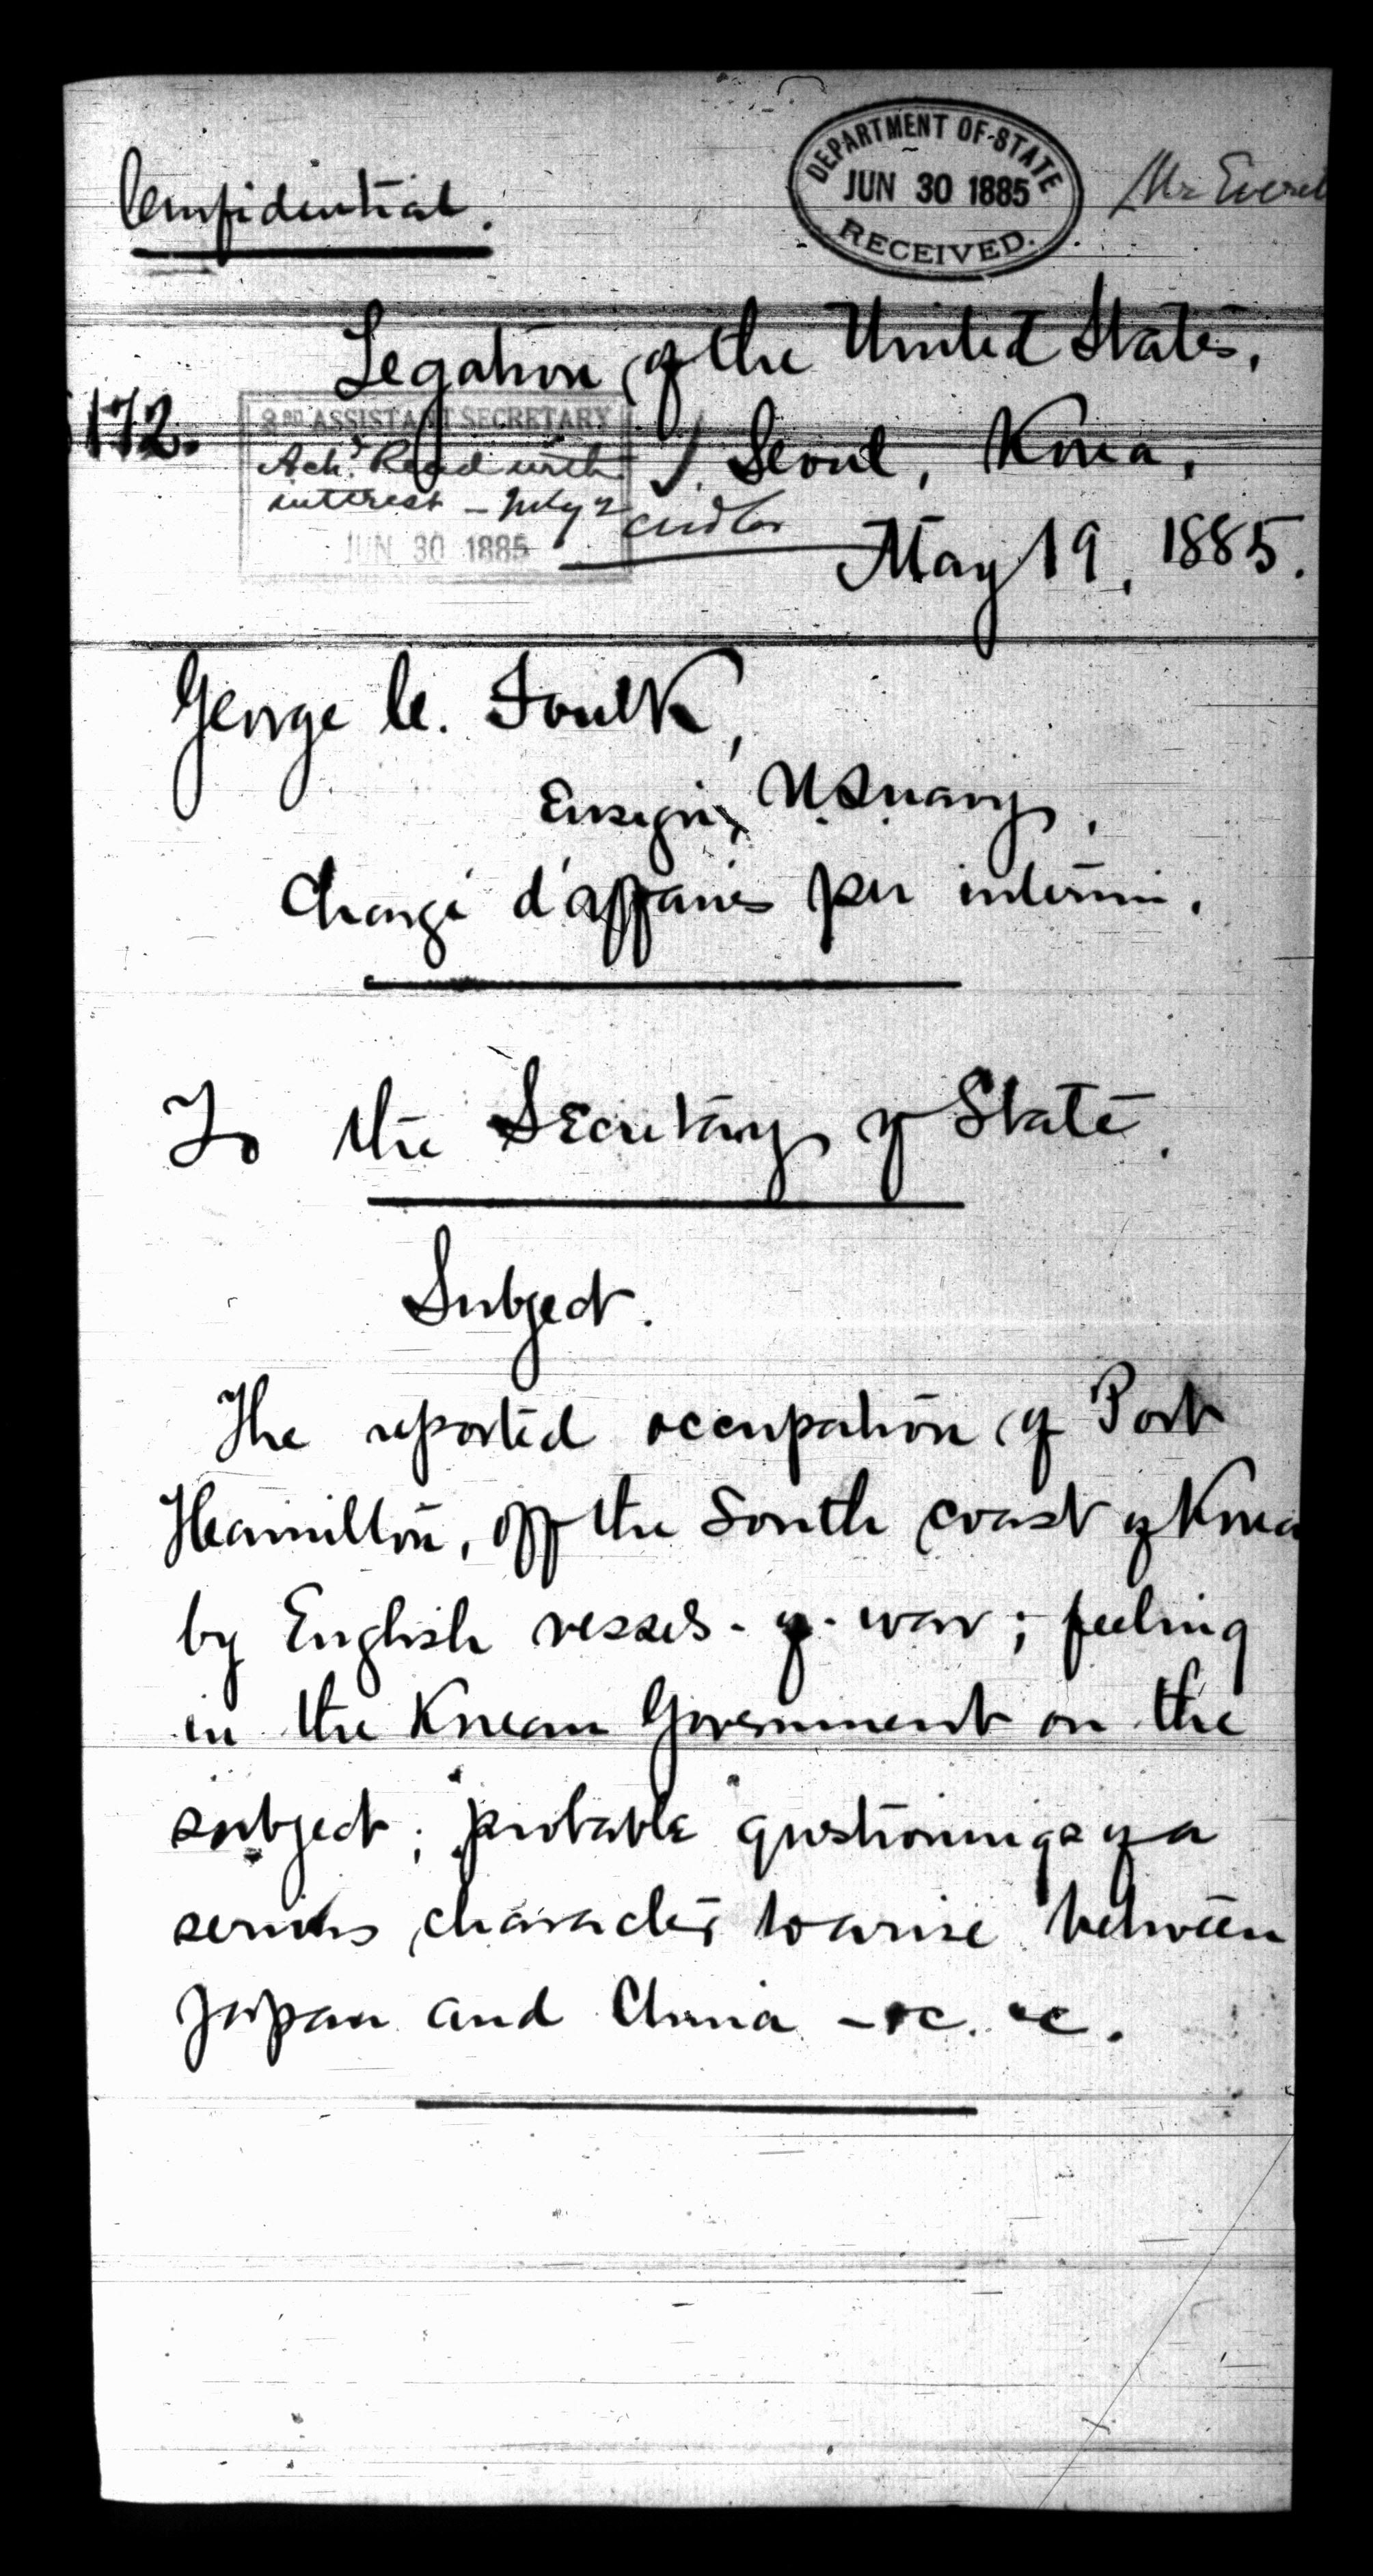 Confidential.
DEPARTMENT OF STATE
JUN 30 1885
RECEIVED.
Mr Everet
Legation of the United States,
172.
3RD ASSISTANT SECRETARY
Seoul, Korea,
Ackd. Read with
interest - July 2
JUN 30 1885
May 19, 1885.
George C. Foulk,
Ensign, U.S. Navy,
Chargé d'affaires per interim.
To the Secretary of State.
Subject.
The reported occupation of Port
Hamilton, off the South coast of Korea
by English vessels-of-war; feeling
in the Korean Government on the
subject; probable questionings of a
serious character to arise between
Japan and China - &c. &c.